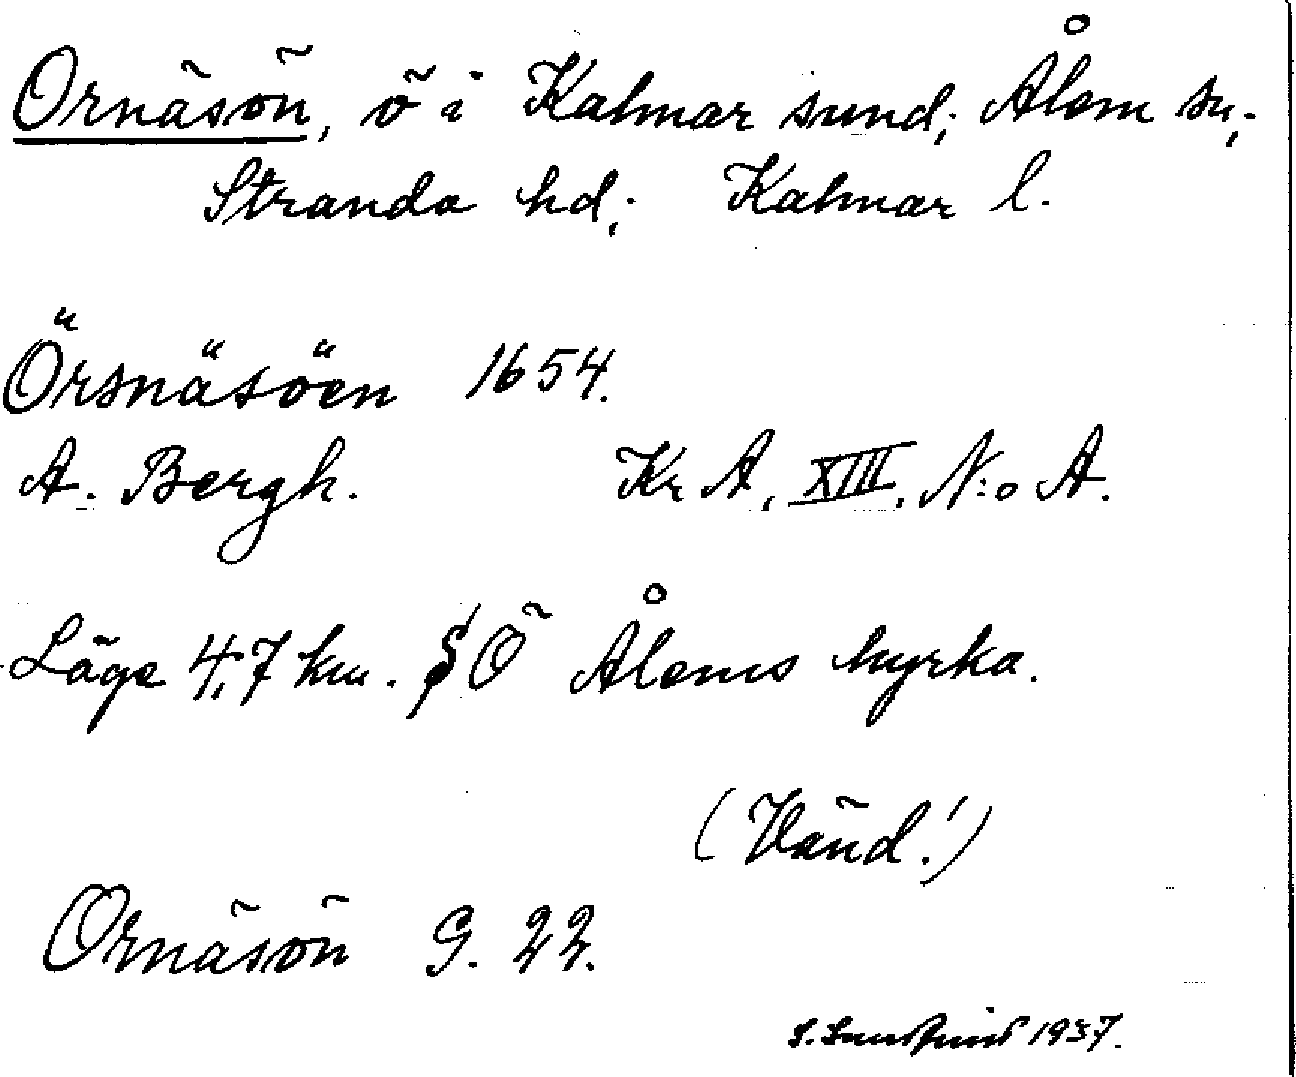 Ornäsön, ö i Kalmar sund; Ålem sn;
Stranda hd; Kalmar l.
Örsnäsöen 1654.
A. Bergh. Kr A, XIII, N:o A.
Läge 4,7 km. SÖ Ålems kyrka.
(Vänd!)
Ornäsön G. 22.
S. 1937.